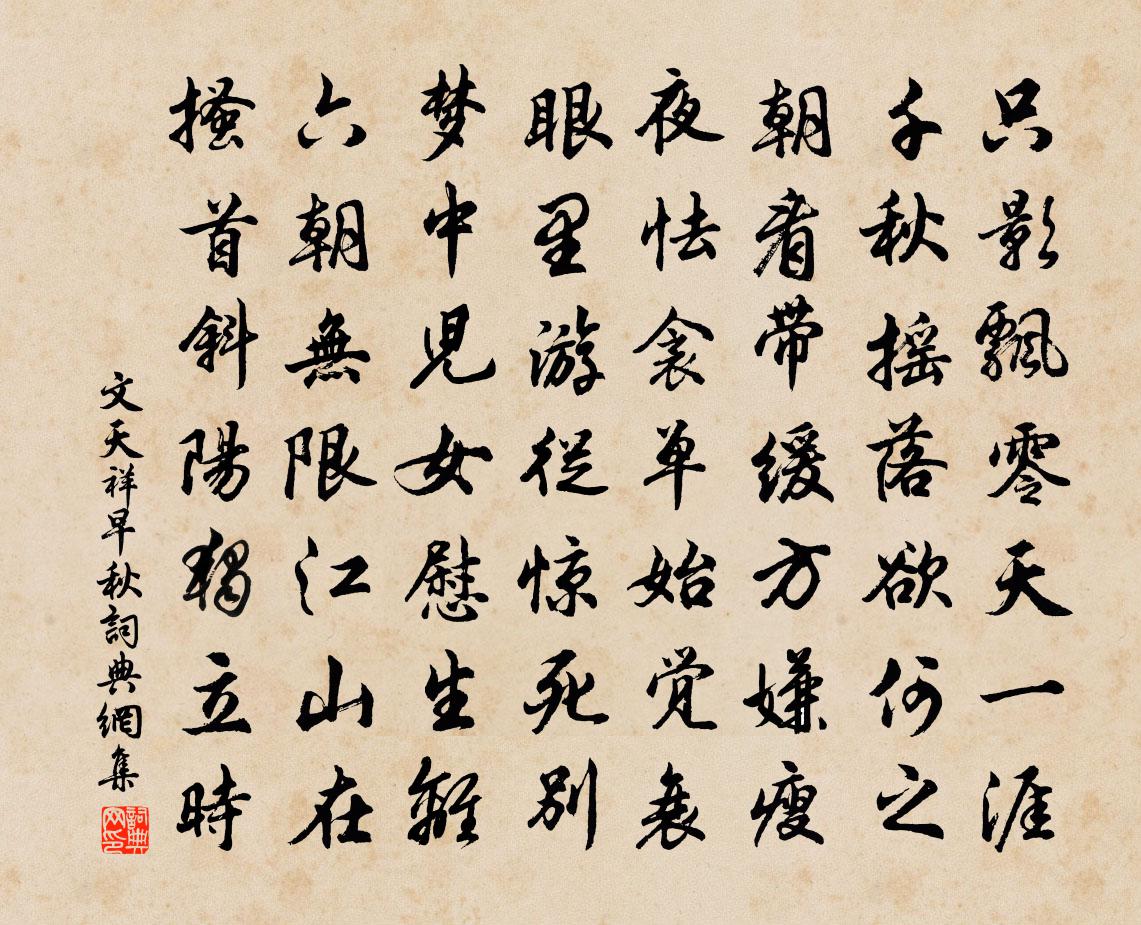 只影飄零天一涯
千秋摇落欲何之
朝看带缓方嫌瘦
夜怯衾单始觉衰
眼里游從惊死别
梦中児女慰生離
六朝無限江山在
搔首斜陽獨立時
文天祥早秋詞典網集
詞典網印